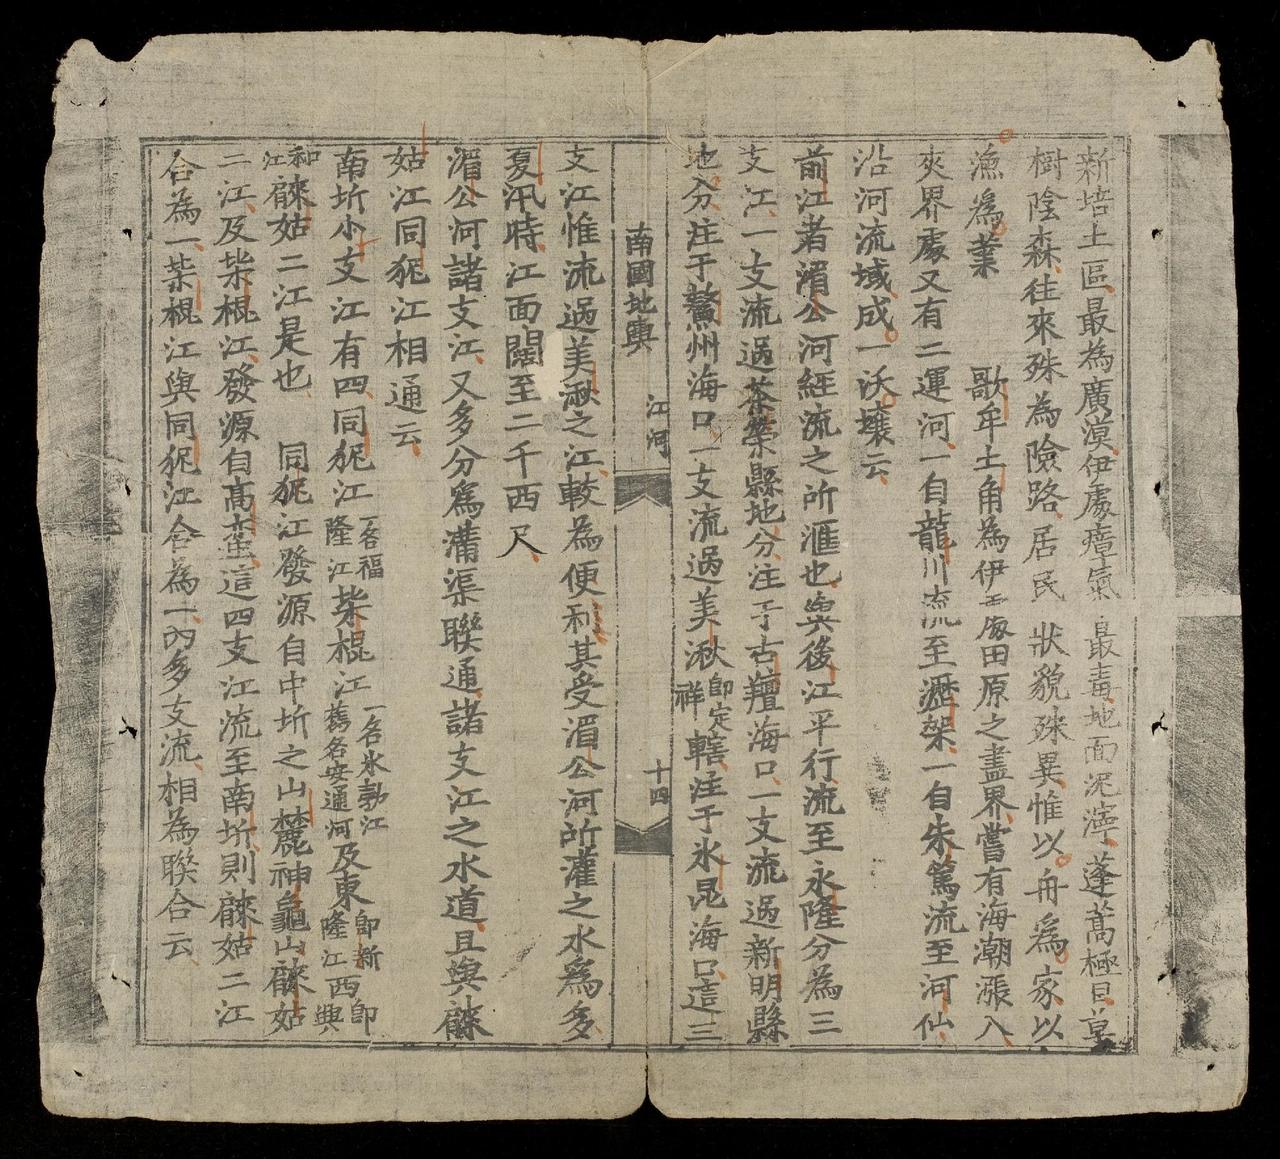 新培土區最為廣漠伊處瘴氣最毒地面泥濘蓬蒿極目草
樹陰森往來殊為險路居民狀貌殊異惟以舟為家以
漁為業　歌牟土角為伊處田原之盡界嘗有海潮漲入
夾界處又有二運河一自龍川流至瀝架一自朱篤流至河仙
沿河流域成一沃壤云
前江者湄公河經流之所滙也與後江平行流至永隆分為三
支江一支流過茶榮縣地分注于古𦎡海口一支流過新明縣
地分注于鰲州海口一支流過美湫即定祥轄注于氷昆海口這三
南國地輿　江河　十四
支江惟流過美湫之江較為便利其受湄公河所灌之水為多
夏汛時江面闊至二千西尺
湄公河諸支江又多分為溝渠聯通諸支江之水道且與𨢇
姑江同狔江相通云
南圻小支江有四同狔江一名福隆江柴棍江一名氷勃江舊名安通河及東即新隆江西即興
和江𨢇姑二江是也　同狔江發源自中圻之山麓神龜山𨢇姑
二江及柴棍江發源自高蛮這四支江流至南圻則𨢇姑二江
合為一柴棍江與同狔江合為一內多支流相為聯合云